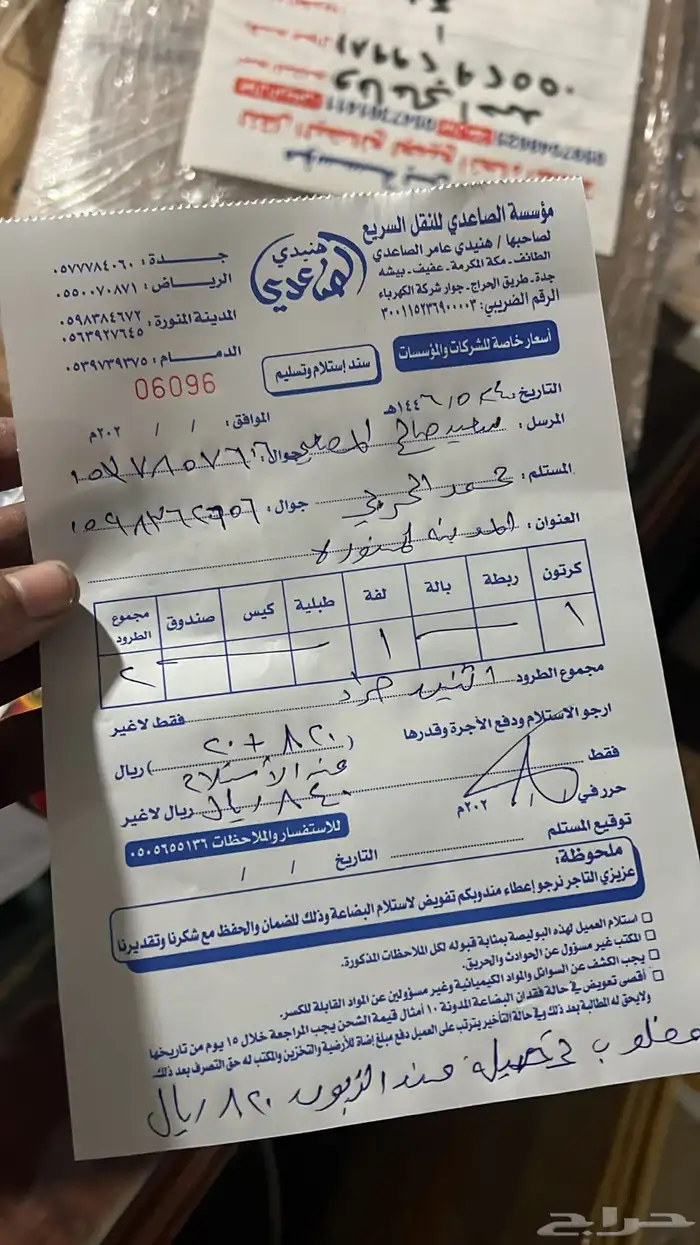 مؤسسة الصاعدي للنقل السريع
لصاحبها / هنيدي عامر الصاعدي
الطائف - مكة المكرمة - عفيف - بيشه
جدة - طريق الحراج - جوار شركة الكهرباء
الرقم الضريبي: ٣٠٠١١٥٢٣٦٩٠٠٠٠٣
هنيدي
الصاعدي
جدة : ٠٥٧٧٧٨٤٠٦٠
الرياض : ٠٥٥٠٠٧٠٨٧١
المدينة المنورة : ٠٥٩٨٣٨٤٦٧٢
٠٥٦٣٩٢٧٦٤٥
الدمام : ٠٥٣٩٧٣٩٣٧٥
06096
أسعار خاصة للشركات والمؤسسات
سند إستلام وتسليم
التاريخ ١٤٤٦/٥/٢٤هـ
الموافق : / / ٢٠٢م
المرسل : سعيد صالح جوال :
المستلم : حمد الحربي جوال :
العنوان : المدينه المنورة
كرتون ربطة بالة لفة طبلية كيس صندوق مجموع الطرود
١ ١ ٢
مجموع الطرود اثنين فقط لاغير
ارجو الاستلام ودفع الأجرة وقدرها (٨٢٠ + ٢٠) ريال
عند الأستلام
فقط ٨٤٠ ريال ريال لاغير
حرر في / / ٢٠٢م
للاستفسار والملاحظات ٠٥٠٥٦٥٥١٣٦
توقيع المستلم التاريخ / /
ملحوظة:
عزيزي التاجر نرجو إعطاء مندوبكم تفويض لاستلام البضاعة وذلك للضمان والحفظ مع شكرنا وتقديرنا
استلام العميل لهذه البوليصة بمثابة قبوله لكل الملاحظات المذكورة.
المكتب غير مسؤول عن الحوادث والحريق.
يجب الكشف عن السوائل والمواد الكيميائية وغير مسؤولين عن المواد القابلة للكسر.
أقصى تعويض في حالة فقدان البضاعة المدونة ١٠ أمثال قيمة الشحن يجب المراجعة خلال ١٥ يوم من تاريخها
ولايحق له المطالبة بعد ذلك وفي حالة التأخير يترتب على العميل دفع مبلغ إضافة للأرضية والتخزين والمكتب له حق التصرف بعد ذلك.
مطلوب تحصيله من الزبون ٨٢٠ ريال
حراج